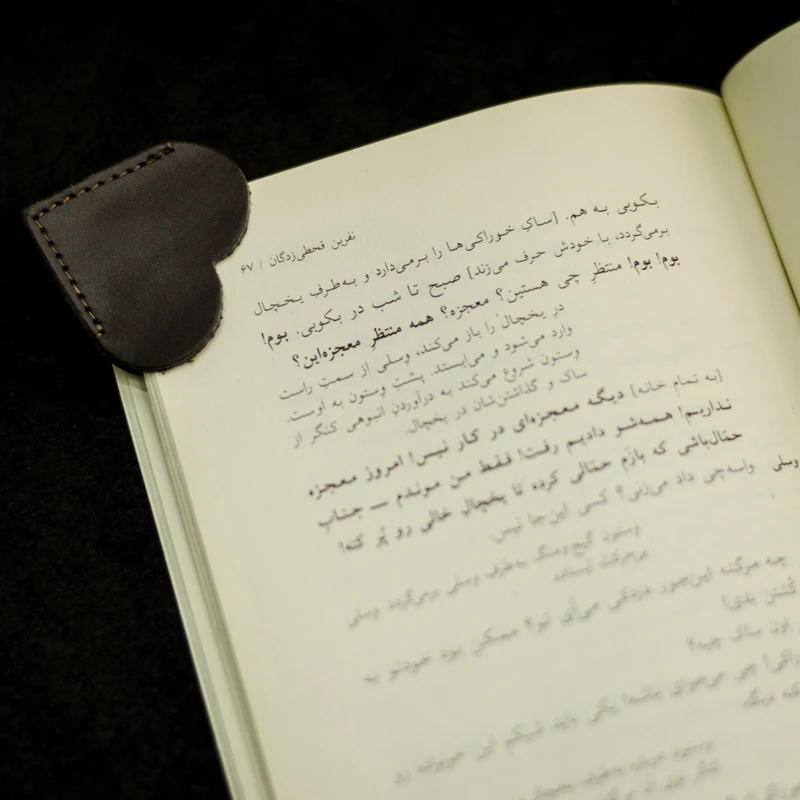 نفرین قحطی‌زدگان / ۶۷
بکوبی به هم. [ساکِ خوراکی‌ها را برمی‌دارد و به‌طرفِ یخچال
برمی‌گردد، با خودش حرف می‌زند] صبح تا شب در بکوبی. بوم!
بوم! بوم! منتظرِ چی هستین؟ معجزه؟ همه منتظرِ معجزه‌این؟
درِ یخچال را باز می‌کند، وسلی از سمتِ راست
وارد می‌شود و می‌ایستد. پشتِ وستون به اوست.
وستون شروع می‌کند به درآوردنِ انبوهی کنگر از
ساک و گذاشتن‌شان در یخچال.
[به تمامِ خانه] دیگه معجزه‌ای در کار نیس! امروز معجزه
نداریم! همه‌شو دادیم رفت! فقط من موندم — جنابِ
حمّال‌باشی که بازم حمّالی کرده تا یخچالِ خالی رو پُر کنه!
وسلی واسه‌چی داد می‌زنی؟ کسی این‌جا نیس.
وستون گیج و منگ به‌طرفِ وسلی برمی‌گردد. وسلی
بی‌حرکت ایستاده.
چه مرگته این‌جور دزدکی می‌آی تو؟ ممکن بود خودتو به
کُشتن بدی!
اون ساک چیه؟